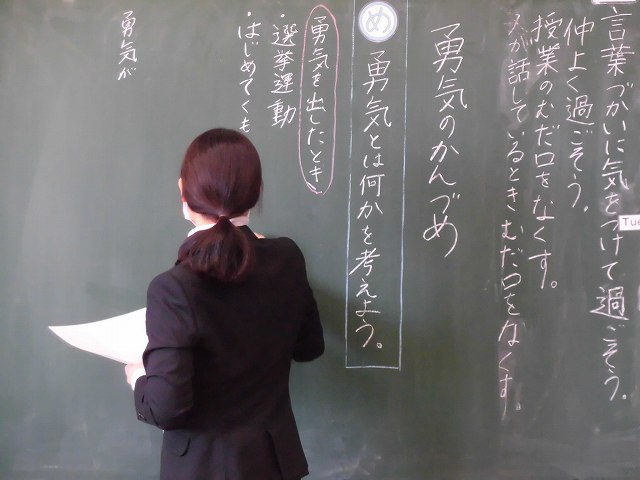 言葉づかいに気をつけて過ごそう。
仲よく過ごそう。
授業のむだ口をなくす。
人が話しているときむだ口をなくす。
Tue
勇気のかんづめ
め
勇気とは何かを考えよう。
勇気を出したとき
・選挙運動
・はじめてくも
勇気が